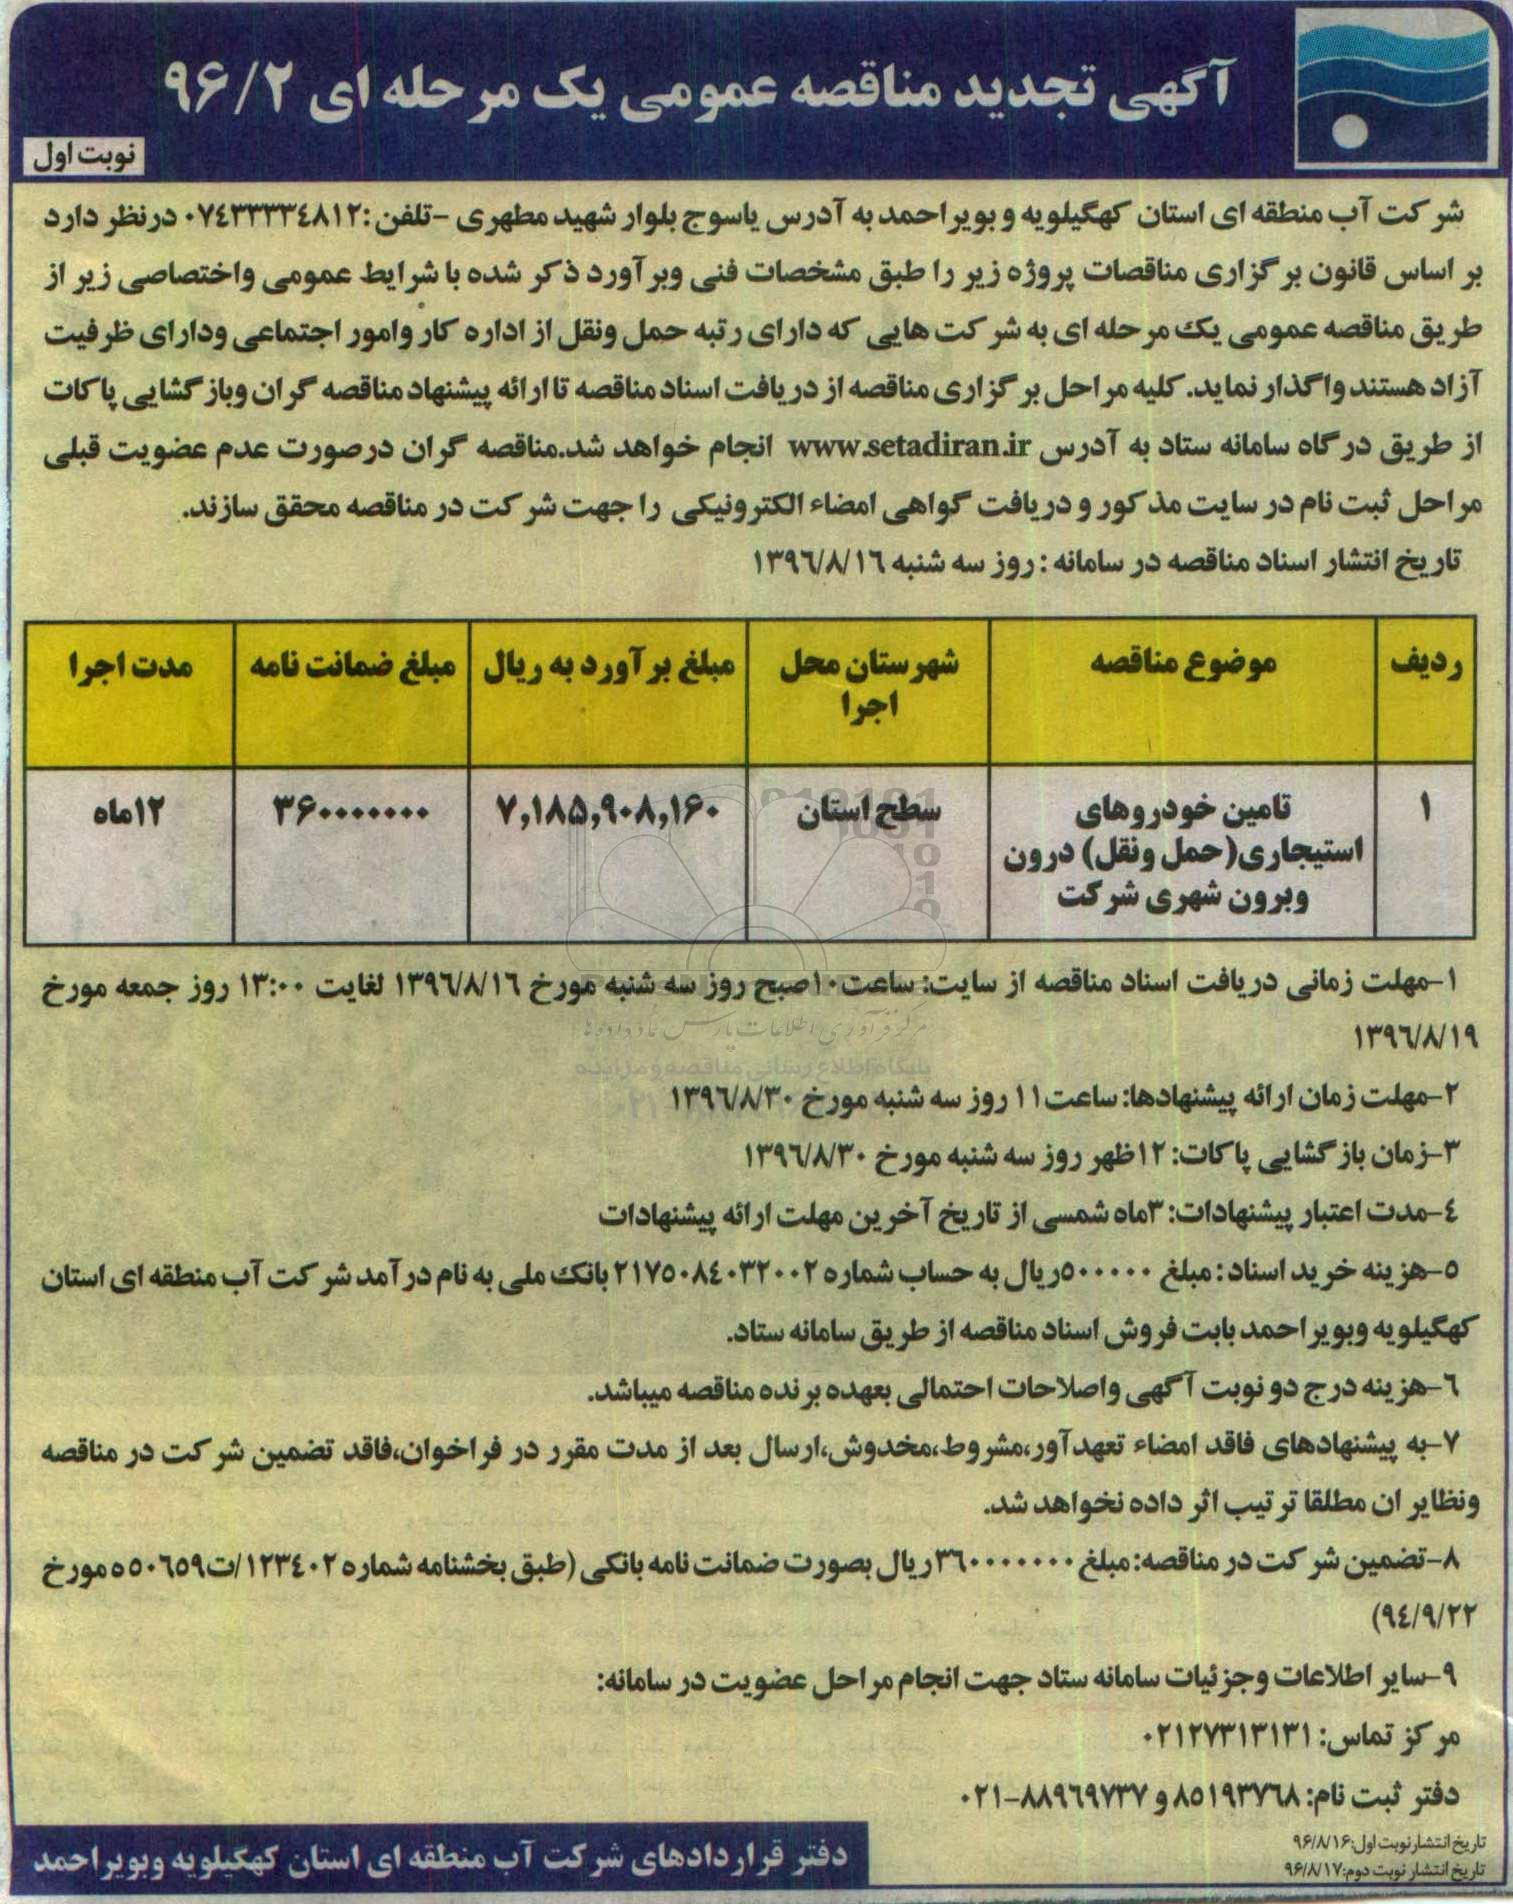 آگهی تجدید مناقصه عمومی یک مرحله ای ۹۶/۲
نوبت اول
شرکت آب منطقه ای استان کهگیلویه و بویراحمد به آدرس یاسوج بلوار شهید مطهری -تلفن :۰۷٤۳۳۳۳٤۸۱۲ درنظر دارد
بر اساس قانون برگزاری مناقصات پروژه زیر را طبق مشخصات فنی وبرآورد ذکر شده با شرایط عمومی واختصاصی زیر از
طریق مناقصه عمومی یک مرحله ای به شرکت هایی که دارای رتبه حمل ونقل از اداره کار وامور اجتماعی ودارای ظرفیت
آزاد هستند واگذار نماید. کلیه مراحل برگزاری مناقصه از دریافت اسناد مناقصه تا ارائه پیشنهاد مناقصه گران وبازگشایی پاکات
از طریق درگاه سامانه ستاد به آدرس www.setadiran.ir انجام خواهد شد.مناقصه گران درصورت عدم عضویت قبلی
مراحل ثبت نام در سایت مذکور و دریافت گواهی امضاء الکترونیکی را جهت شرکت در مناقصه محقق سازند.
تاریخ انتشار اسناد مناقصه در سامانه : روز سه شنبه ۱۳۹٦/۸/۱٦
ردیف موضوع مناقصه شهرستان محل مبلغ برآورد به ریال مبلغ ضمانت نامه مدت اجرا
اجرا
۱ تامین خودروهای سطح استان ۷,۱۸۵,۹۰۸,۱۶۰ ۳۶۰۰۰۰۰۰۰ ۱۲ماه
استیجاری(حمل ونقل) درون
وبرون شهری شرکت
۱-مهلت زمانی دریافت اسناد مناقصه از سایت: ساعت۱۰صبح روز سه شنبه مورخ ۱۳۹٦/۸/۱٦ لغایت ۱۳:۰۰ روز جمعه مورخ
۱۳۹٦/۸/۱۹
مرکز فرآوری اطلاعات پارس نماد داده ها
پایگاه اطلاع رسانی مناقصه و مزایده
۲-مهلت زمان ارائه پیشنهادها: ساعت۱۱ روز سه شنبه مورخ ۱۳۹٦/۸/۳۰
۳-زمان بازگشایی پاکات: ۱۲ظهر روز سه شنبه مورخ ۱۳۹٦/۸/۳۰
٤-مدت اعتبار پیشنهادات: ۳ماه شمسی از تاریخ آخرین مهلت ارائه پیشنهادات
٥-هزینه خرید اسناد : مبلغ ٥۰۰۰۰۰ریال به حساب شماره ۲۱۷٥۰۸٤۰۳۲۰۰۲ بانک ملی به نام درآمد شرکت آب منطقه ای استان
کهگیلویه وبویراحمد بابت فروش اسناد مناقصه از طریق سامانه ستاد.
٦-هزینه درج دو نوبت آگهی واصلاحات احتمالی بعهده برنده مناقصه میباشد.
۷-به پیشنهادهای فاقد امضاء تعهدآور،مشروط،مخدوش،ارسال بعد از مدت مقرر در فراخوان،فاقد تضمین شرکت در مناقصه
ونظایر ان مطلقا ترتیب اثر داده نخواهد شد.
۸-تضمین شرکت در مناقصه: مبلغ ۳٦۰۰۰۰۰۰۰ریال بصورت ضمانت نامه بانکی (طبق بخشنامه شماره ۱۲۳٤۰۲/ت٥۰٦٥۹ه مورخ
۹٤/۹/۲۲)
۹-سایر اطلاعات وجزئیات سامانه ستاد جهت انجام مراحل عضویت در سامانه:
مرکز تماس: ۰۲۱۲۷۳۱۳۱۳۱
دفتر ثبت نام: ۸٥۱۹۳۷٦۸ و ۸۸۹٦۹۷۳۷-۰۲۱
تاریخ انتشار نوبت اول: ۹۶/۸/۱۶
تاریخ انتشار نوبت دوم: ۹۶/۸/۱۷
دفتر قراردادهای شرکت آب منطقه ای استان کهگیلویه وبویراحمد